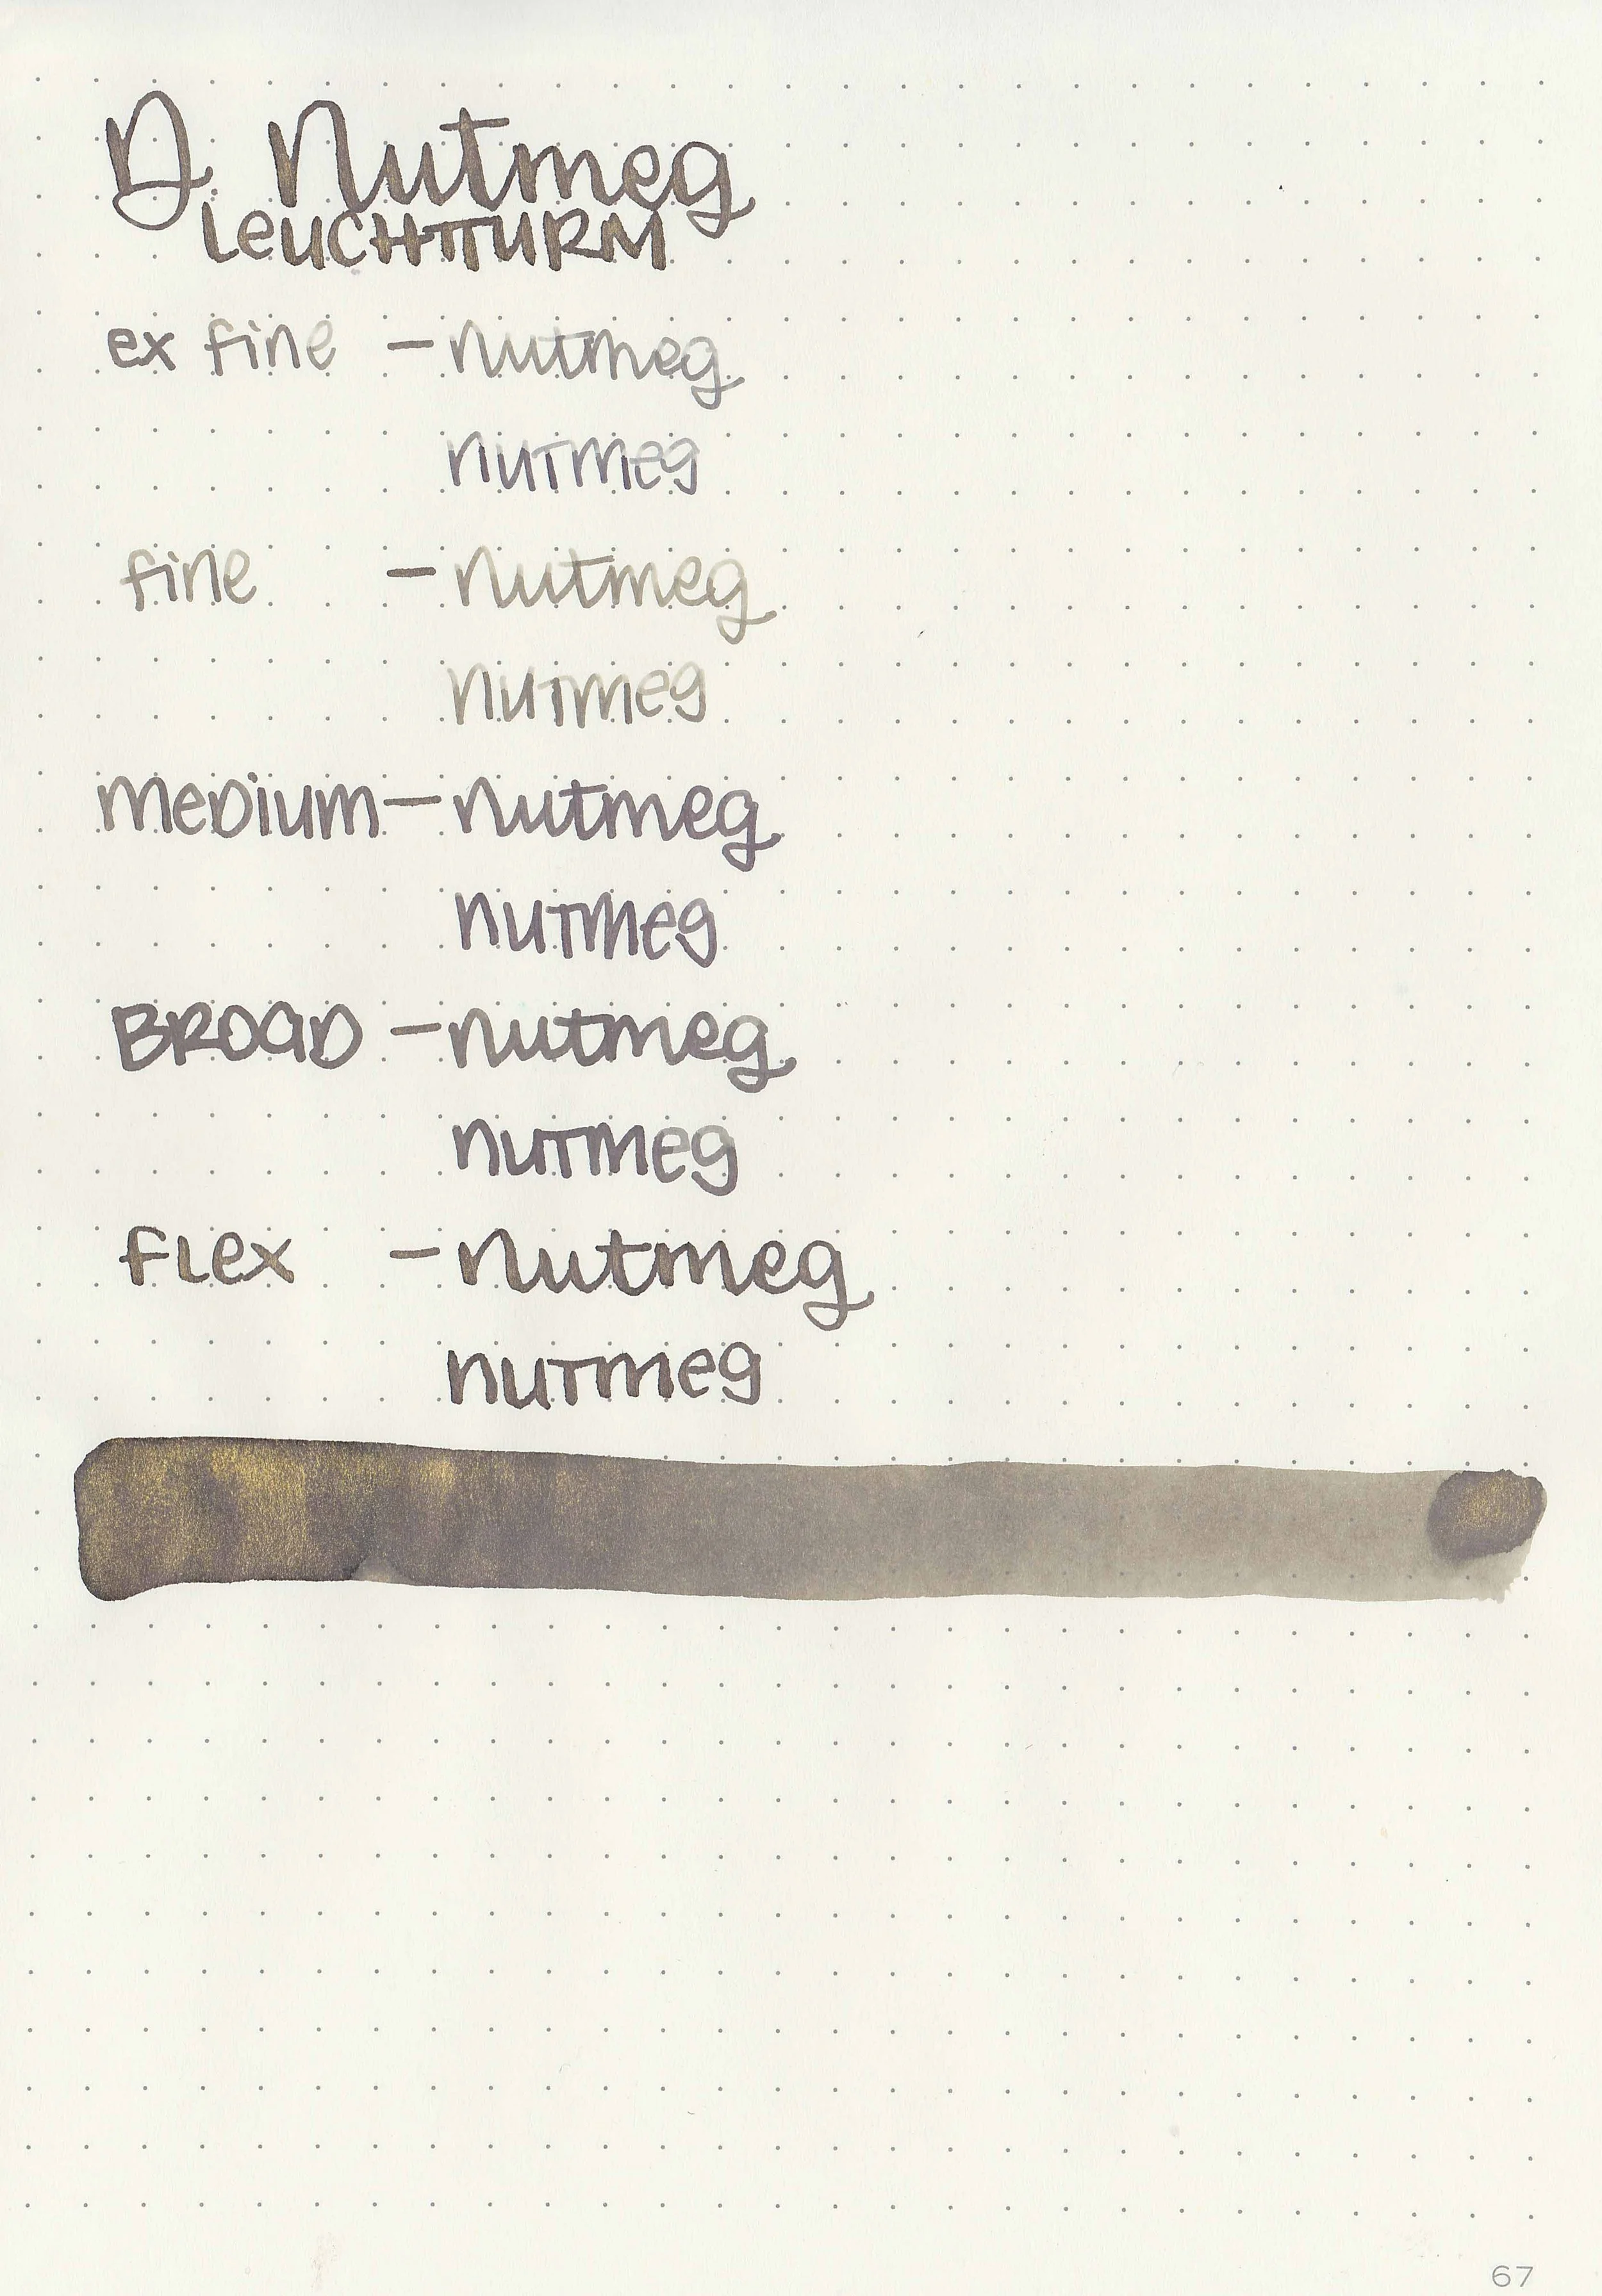 D. Nutmeg
LeUCHTTURM
ex fine - nutmeg
nutmeg
fine - nutmeg
nutmeg
meDium - nutmeg
nutmeg
BROaD - nutmeg
nutmeg
FLex - nutmeg
nutmeg
67